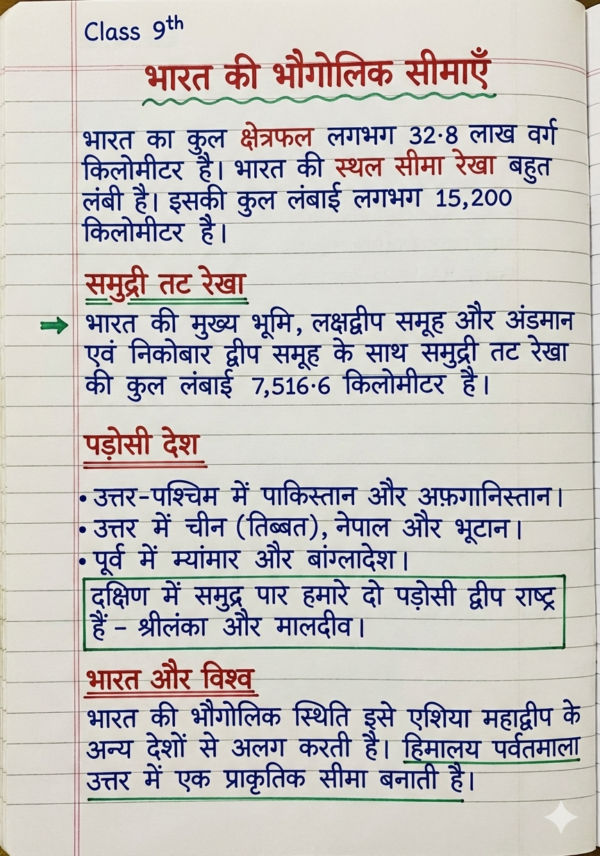 Class 9th
भारत की भौगोलिक सीमाएँ
भारत का कुल क्षेत्रफल लगभग 32·8 लाख वर्ग
किलोमीटर है। भारत की स्थल सीमा रेखा बहुत
लंबी है। इसकी कुल लंबाई लगभग 15,200
किलोमीटर है।
समुद्री तट रेखा
भारत की मुख्य भूमि, लक्षद्वीप समूह और अंडमान
एवं निकोबार द्वीप समूह के साथ समुद्री तट रेखा
की कुल लंबाई 7,516·6 किलोमीटर है।
पड़ोसी देश
• उत्तर-पश्चिम में पाकिस्तान और अफ़गानिस्तान।
• उत्तर में चीन (तिब्बत), नेपाल और भूटान।
• पूर्व में म्यांमार और बांग्लादेश।
दक्षिण में समुद्र पार हमारे दो पड़ोसी द्वीप राष्ट्र
हैं – श्रीलंका और मालदीव।
भारत और विश्व
भारत की भौगोलिक स्थिति इसे एशिया महाद्वीप के
अन्य देशों से अलग करती है। हिमालय पर्वतमाला
उत्तर में एक प्राकृतिक सीमा बनाती है।